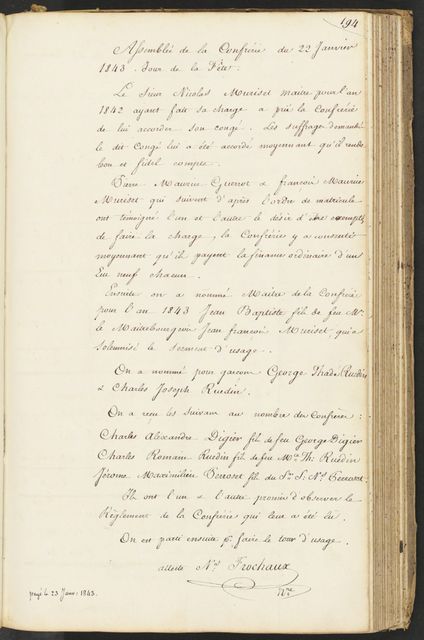 194
Assemblée de la Confrérie du 22 Janvier
1843. Jour de la Fête.
Le Sieur Nicolas Muriset maitre pour l'an
1842 ayant fait sa charge a prié la Confrérie
de lui accorder son congé. Les suffrage demandé
le dit Congé lui a été accordé moyennant qu'il rende
bon et fidel compte.
Pierre Maurice Guenot & françois Maurice
Muriset qui suivent d'après l'ordre de matricule
ont témoigné l'un et l'autre le désir d'être exempts
de faire la charge, la Confrérie y a consenti
moyennant qu'ils payent la finance ordinaire d'un
Ecu neuf chacun.
Ensuite on a nommé Maitre de la Confrérie
pour l'an 1843 Jean Baptiste fils de feu Mr
le Maitrebourgeois Jean françois Muriset, qui a
solemnisé le serment d'usage.
On a nommé pour garçons George Thade Ruedin
& Charles Joseph Ruedin.
On a reçu les suivant au nombre des Confrères:
Charles Alexandre Digier fils de feu George Digier
Charles Romain Ruedin fils de feu Mce Th: Ruedin
Jérome Maximilien Perroset fils du Sr S: Ns Perroset
Ils ont l'un & l'autre promis d'observer le
Règlement de la Confrérie qui leur a été lu.
On est parti ensuite pr faire le tour d'usage.
atteste Ns Frochaux
Nre
payé le 23 Janv: 1843.